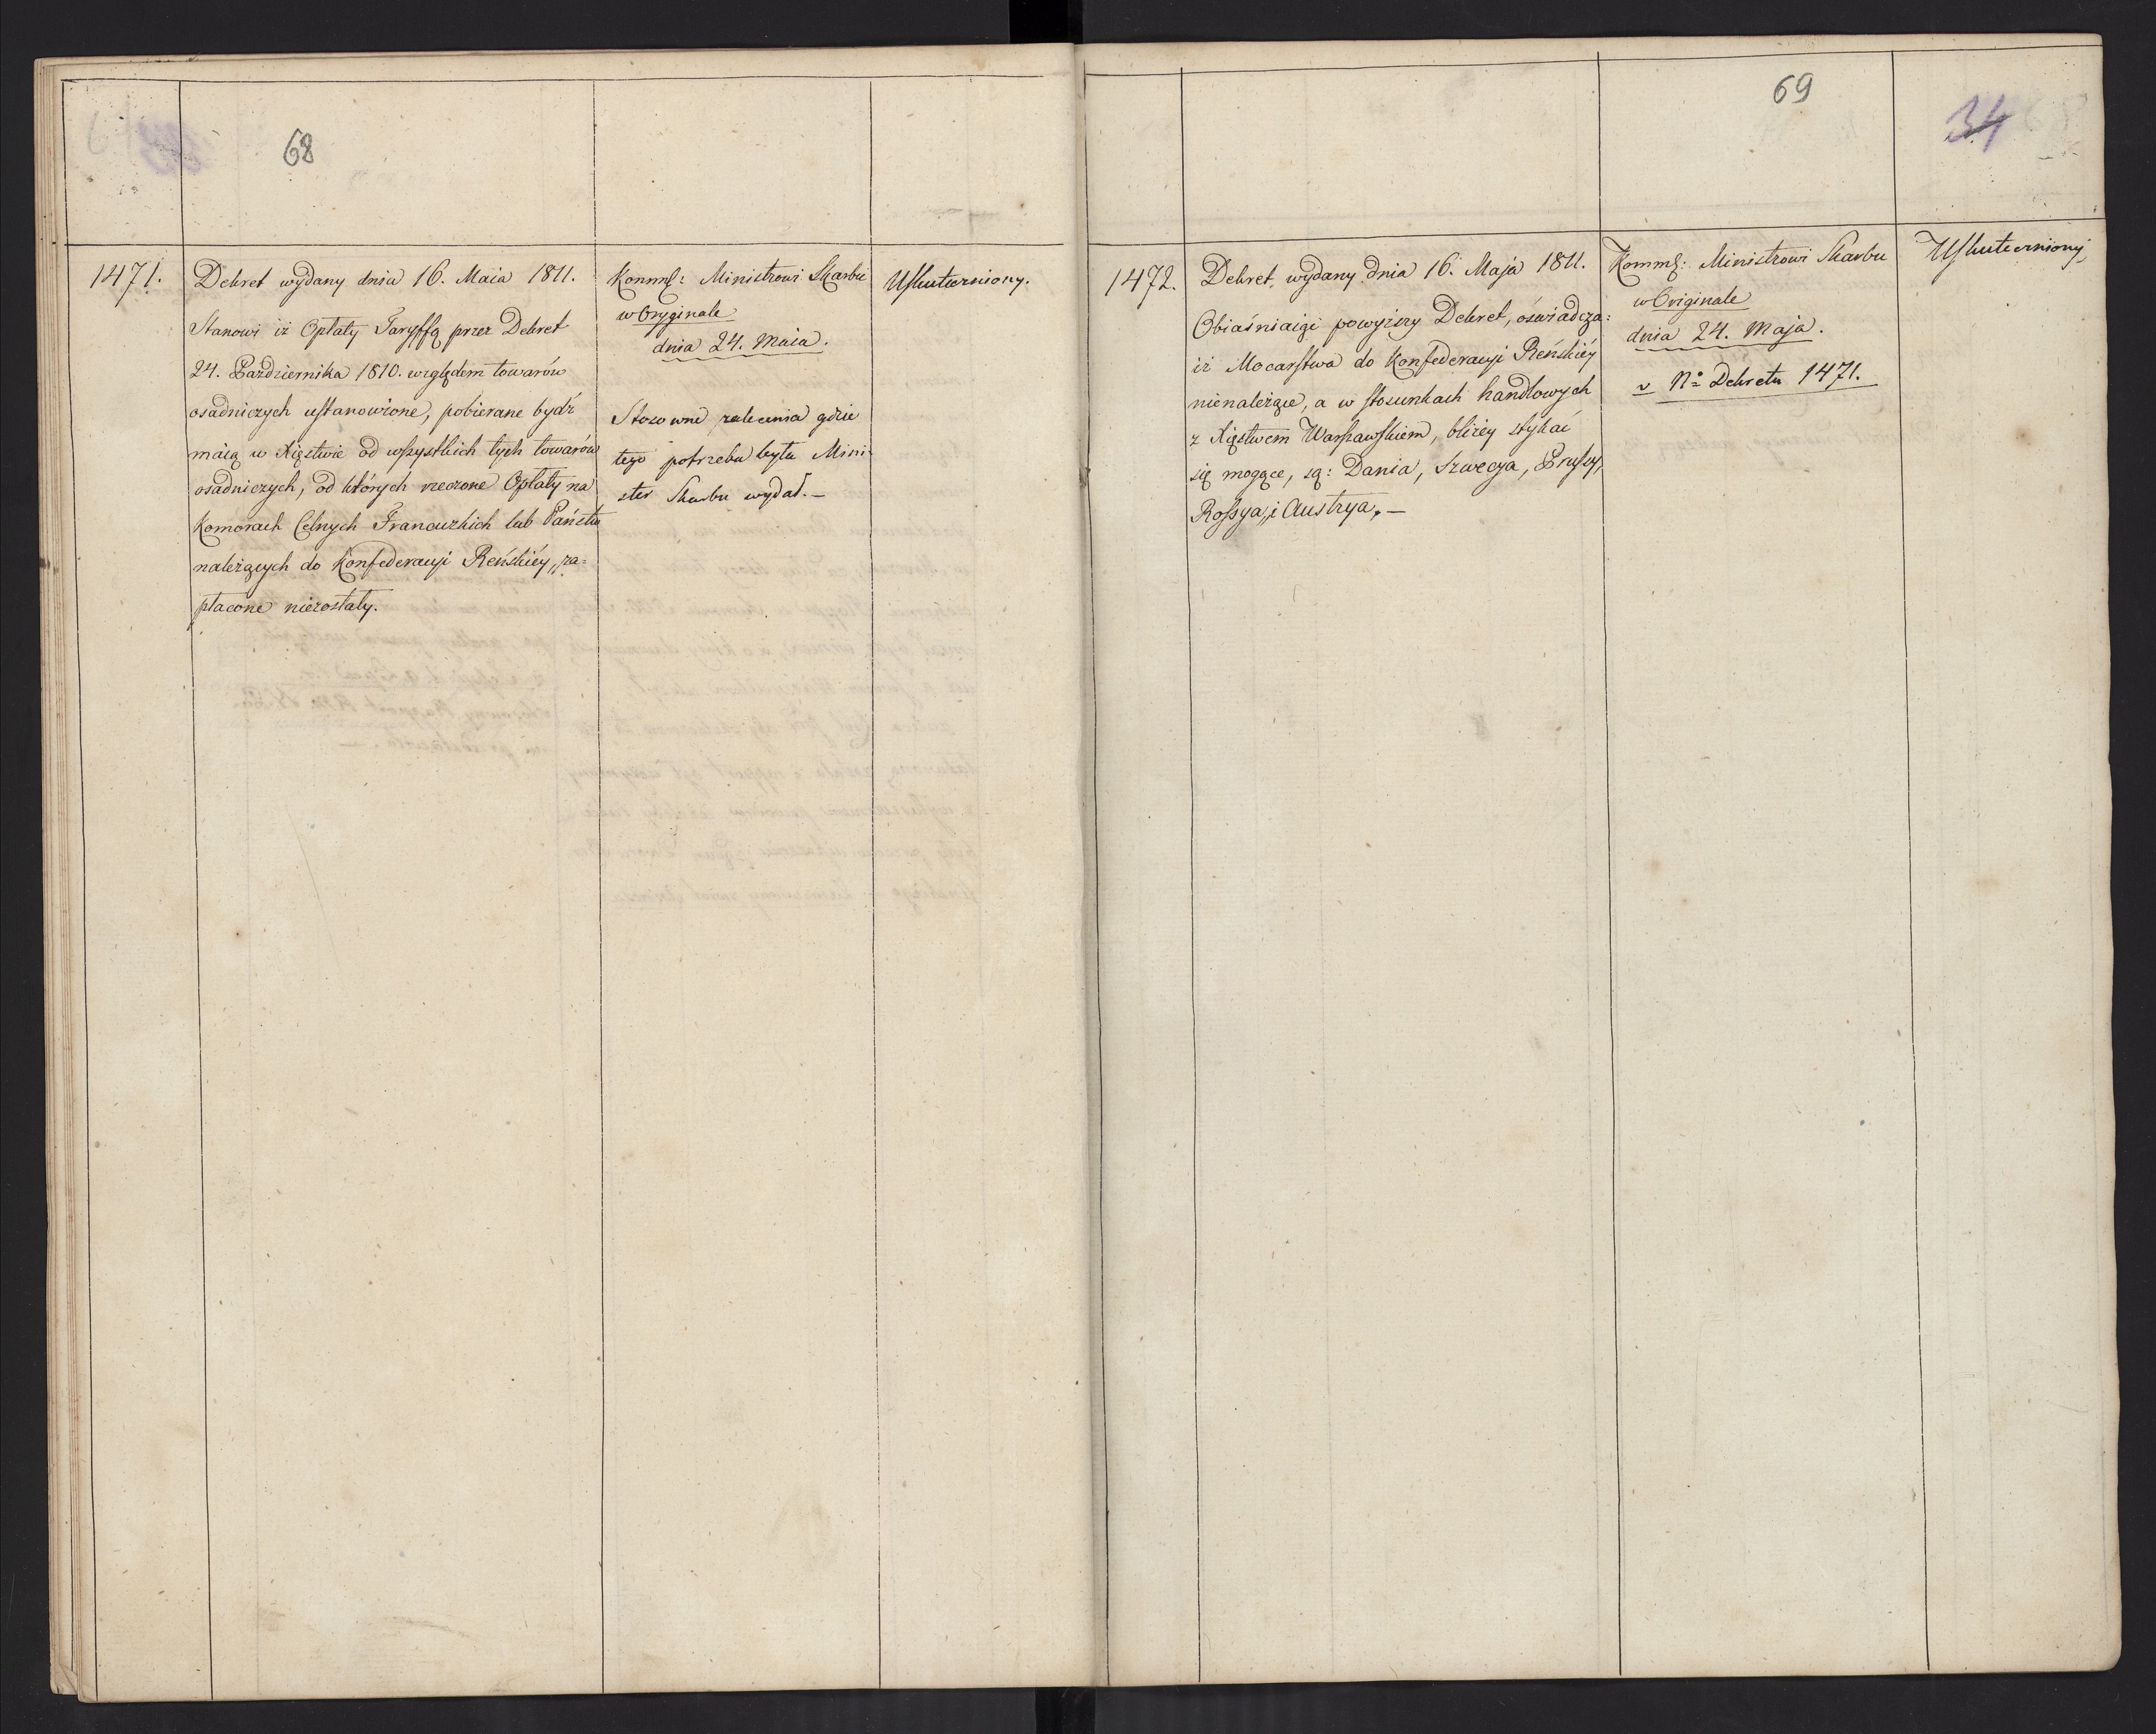 68
1471.
Dekret wydany dnia 16. Maia 1811.
Stanowi iż Opłaty Taryffą przez Dekret
24. Października 1810. względem towarów
osadniczych ustanowione, pobierane bydź
máią w Xięstwie od wszystkich tych towarów
osadniczych, od których rzeczone Opłaty na
Komorach Celnych Francuzkich lub Państw
należących do Konfederacyi Reńskiéy, za=
płacone niezostały.
Kommk: Ministrowi Skarbu
w Oryginale
dnia 24. Maia.
Stosowne zalecenia gdzie
tego potrzeba była Mini-
ster Skarbu wydał. —
Uskuteczniony.
69
34
1472.
Dekret, wydany dnia 16. Maja 1811.
Obiaśniaiąi powyższy Dekret, oświadcza:
iż Mocarstwa do Konfederacyi Reńskiéy
nienależące, a w stosunkach handlowych
z Xięstwem Warszawskiem, bliżey stykać
się mogące, są: Dania, Szwecya, Prussy,
Rossya, i Austrya, —
Kommk: Ministrowi Skarbu
w Originale
dnia 24. Maja.
v Nº Dekretu 1471.
Uskuteczniony